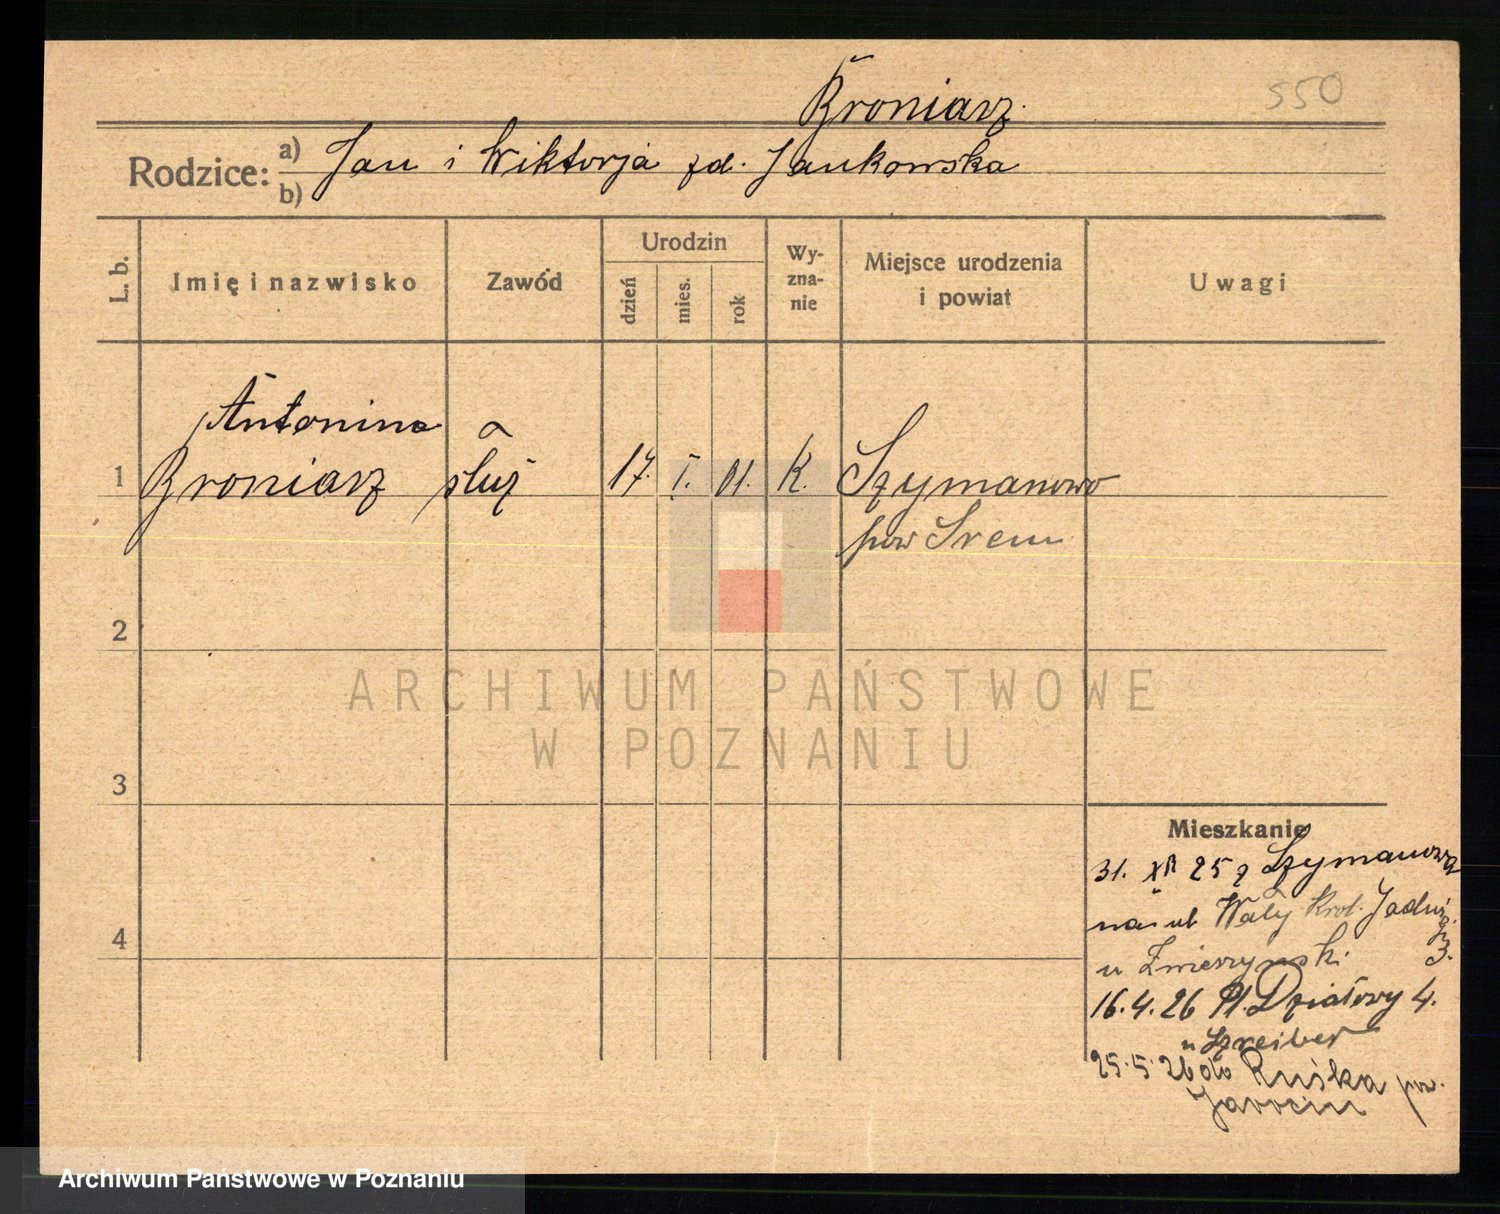 Broniarz
550
Rodzice: a) Jan i Wiktorja zd. Jankowska
b)
L. b.
Imię i nazwisko
Zawód
Urodzin
dzień
mies.
rok
Wy-
zna-
nie
Miejsce urodzenia
i powiat
Uwagi
Antonina
1 Broniarz służ 17. I. 01. K. Szymanowo
pow Srem
2
ARCHIWUM PAŃSTWOWE
W POZNANIU
3
4
Mieszkanie
31. XII 25 z Szymanowa
na ul Wały Król. Jadwigi
3.
u Zwierzyński
16.4.26 Pl. Działowy 4.
u Szreiber
25.5.26 do Ruśka pow.
Jarocin
Archiwum Państwowe w Poznaniu